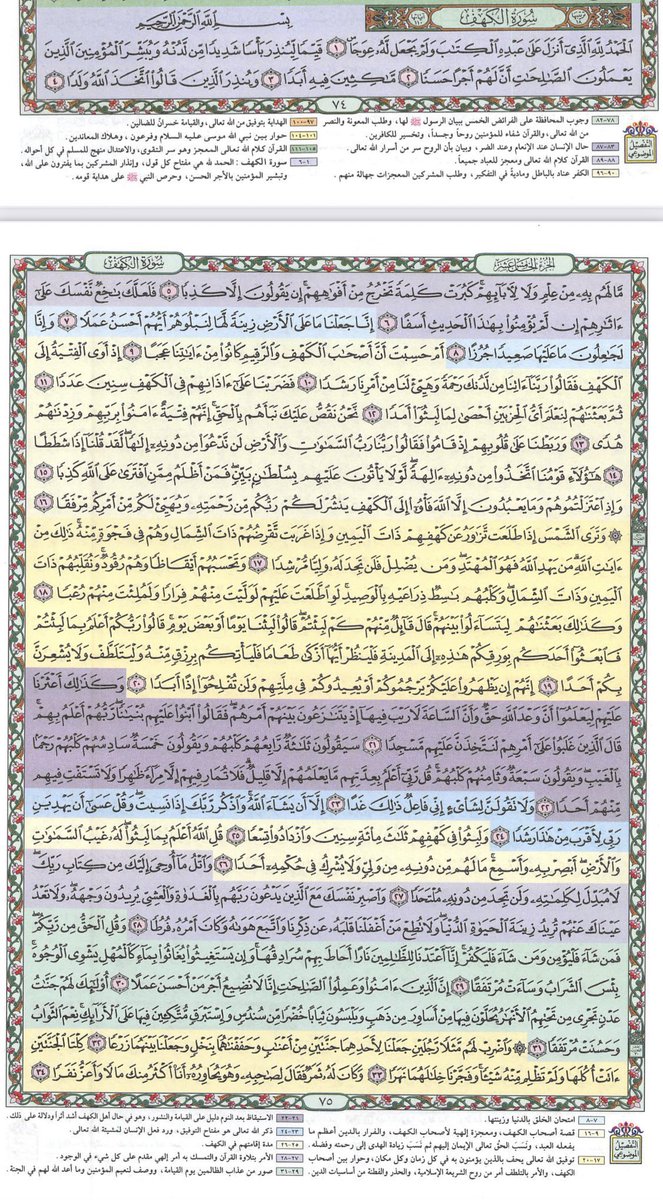 سُورَةُ الكَهْفِ
بِسْمِ اللَّهِ الرَّحْمَٰنِ الرَّحِيمِ
الْحَمْدُ لِلَّهِ الَّذِي أَنزَلَ عَلَىٰ عَبْدِهِ الْكِتَابَ وَلَمْ يَجْعَل لَّهُ عِوَجًا ١ قَيِّمًا لِّيُنذِرَ بَأْسًا شَدِيدًا مِّن لَّدُنْهُ وَيُبَشِّرَ الْمُؤْمِنِينَ الَّذِينَ
يَعْمَلُونَ الصَّالِحَاتِ أَنَّ لَهُمْ أَجْرًا حَسَنًا ٢ مَّاكِثِينَ فِيهِ أَبَدًا ٣ وَيُنذِرَ الَّذِينَ قَالُوا اتَّخَذَ اللَّهُ وَلَدًا ٤
٧٤
التَّفصيل الموضوعي
٧٨-٨٢ وجوب المحافظة على الفرائض الخمس ببيان الرسول ﷺ لها، وطلب المعونة والنصر
من الله تعالى، والقرآن شفاء للمؤمنين روحاً وجسداً، وتخسير للكافرين.
٨٣-٨٧ حال الإنسان عند الإنعام وعند الضر، وبيان بأن الروح سر من أسرار الله تعالى.
٨٨-٨٩ القرآن كلام الله تعالى ومعجز للعباد جميعاً.
٩٠-٩٦ الكفر عناد بالباطل ومادية في التفكير، وطلب المشركين المعجزات جهالة منهم.
٩٧-١٠٠ الهداية بتوفيق من الله تعالى، والقيامة خسران للضالين.
١٠١-١٠٤ حوار بين نبي الله موسى عليه السلام وفرعون، وهلاك المعاندين.
١٠٥-١١١ القرآن كلام الله تعالى المعجز وهو سر التقوى، والاعتدال منهج للمسلم في كل أحواله.
١-٦ سورة الكهف: الحمد لله هي مفتاح كل قول، وإنذار المشركين بما يفترون على الله،
وتبشير المؤمنين بالأجر الحسن، وحرص النبي ﷺ على هداية قومه.
الجزء الخامس عشر
سُورَةُ الكَهْفِ
مَّا لَهُم بِهِ مِنْ عِلْمٍ وَلَا لِآبَائِهِمْ كَبُرَتْ كَلِمَةً تَخْرُجُ مِنْ أَفْوَاهِهِمْ إِن يَقُولُونَ إِلَّا كَذِبًا ٥ فَلَعَلَّكَ بَاخِعٌ نَّفْسَكَ عَلَىٰ
آثَارِهِمْ إِن لَّمْ يُؤْمِنُوا بِهَٰذَا الْحَدِيثِ أَسَفًا ٦ إِنَّا جَعَلْنَا مَا عَلَى الْأَرْضِ زِينَةً لَّهَا لِنَبْلُوَهُمْ أَيُّهُمْ أَحْسَنُ عَمَلًا ٧ وَإِنَّا
لَجَاعِلُونَ مَا عَلَيْهَا صَعِيدًا جُرُزًا ٨ أَمْ حَسِبْتَ أَنَّ أَصْحَابَ الْكَهْفِ وَالرَّقِيمِ كَانُوا مِنْ آيَاتِنَا عَجَبًا ٩ إِذْ أَوَى الْفِتْيَةُ إِلَى
الْكَهْفِ فَقَالُوا رَبَّنَا آتِنَا مِن لَّدُنكَ رَحْمَةً وَهَيِّئْ لَنَا مِنْ أَمْرِنَا رَشَدًا ١٠ فَضَرَبْنَا عَلَىٰ آذَانِهِمْ فِي الْكَهْفِ سِنِينَ عَدَدًا ١١
ثُمَّ بَعَثْنَاهُمْ لِنَعْلَمَ أَيُّ الْحِزْبَيْنِ أَحْصَىٰ لِمَا لَبِثُوا أَمَدًا ١٢ نَّحْنُ نَقُصُّ عَلَيْكَ نَبَأَهُم بِالْحَقِّ إِنَّهُمْ فِتْيَةٌ آمَنُوا بِرَبِّهِمْ وَزِدْنَاهُمْ
هُدًى ١٣ وَرَبَطْنَا عَلَىٰ قُلُوبِهِمْ إِذْ قَامُوا فَقَالُوا رَبُّنَا رَبُّ السَّمَاوَاتِ وَالْأَرْضِ لَن نَّدْعُوَ مِن دُونِهِ إِلَٰهًا لَّقَدْ قُلْنَا إِذًا شَطَطًا
١٤ هَٰؤُلَاءِ قَوْمُنَا اتَّخَذُوا مِن دُونِهِ آلِهَةً لَّوْلَا يَأْتُونَ عَلَيْهِم بِسُلْطَانٍ بَيِّنٍ فَمَنْ أَظْلَمُ مِمَّنِ افْتَرَىٰ عَلَى اللَّهِ كَذِبًا ١٥
وَإِذِ اعْتَزَلْتُمُوهُمْ وَمَا يَعْبُدُونَ إِلَّا اللَّهَ فَأْوُوا إِلَى الْكَهْفِ يَنشُرْ لَكُمْ رَبُّكُم مِّن رَّحْمَتِهِ وَيُهَيِّئْ لَكُم مِّنْ أَمْرِكُم مِّرْفَقًا ١٦
۞ وَتَرَى الشَّمْسَ إِذَا طَلَعَت تَّزَاوَرُ عَن كَهْفِهِمْ ذَاتَ الْيَمِينِ وَإِذَا غَرَبَت تَّقْرِضُهُمْ ذَاتَ الشِّمَالِ وَهُمْ فِي فَجْوَةٍ مِّنْهُ ذَٰلِكَ مِنْ
آيَاتِ اللَّهِ مَن يَهْدِ اللَّهُ فَهُوَ الْمُهْتَدِ وَمَن يُضْلِلْ فَلَن تَجِدَ لَهُ وَلِيًّا مُّرْشِدًا ١٧ وَتَحْسَبُهُمْ أَيْقَاظًا وَهُمْ رُقُودٌ وَنُقَلِّبُهُمْ ذَاتَ
الْيَمِينِ وَذَاتَ الشِّمَالِ وَكَلْبُهُم بَاسِطٌ ذِرَاعَيْهِ بِالْوَصِيدِ لَوِ اطَّلَعْتَ عَلَيْهِمْ لَوَلَّيْتَ مِنْهُمْ فِرَارًا وَلَمُلِئْتَ مِنْهُمْ رُعْبًا ١٨
وَكَذَٰلِكَ بَعَثْنَاهُمْ لِيَتَسَاءَلُوا بَيْنَهُمْ قَالَ قَائِلٌ مِّنْهُمْ كَمْ لَبِثْتُمْ قَالُوا لَبِثْنَا يَوْمًا أَوْ بَعْضَ يَوْمٍ قَالُوا رَبُّكُمْ أَعْلَمُ بِمَا لَبِثْتُمْ
فَابْعَثُوا أَحَدَكُم بِوَرِقِكُمْ هَٰذِهِ إِلَى الْمَدِينَةِ فَلْيَنظُرْ أَيُّهَا أَزْكَىٰ طَعَامًا فَلْيَأْتِكُم بِرِزْقٍ مِّنْهُ وَلْيَتَلَطَّفْ وَلَا يُشْعِرَنَّ
بِكُمْ أَحَدًا ١٩ إِنَّهُمْ إِن يَظْهَرُوا عَلَيْكُمْ يَرْجُمُوكُمْ أَوْ يُعِيدُوكُمْ فِي مِلَّتِهِمْ وَلَن تُفْلِحُوا إِذًا أَبَدًا ٢٠ وَكَذَٰلِكَ أَعْثَرْنَا
عَلَيْهِمْ لِيَعْلَمُوا أَنَّ وَعْدَ اللَّهِ حَقٌّ وَأَنَّ السَّاعَةَ لَا رَيْبَ فِيهَا إِذْ يَتَنَازَعُونَ بَيْنَهُمْ أَمْرَهُمْ فَقَالُوا ابْنُوا عَلَيْهِم بُنْيَانًا رَّبُّهُمْ أَعْلَمُ بِهِمْ
قَالَ الَّذِينَ غَلَبُوا عَلَىٰ أَمْرِهِمْ لَنَتَّخِذَنَّ عَلَيْهِم مَّسْجِدًا ٢١ سَيَقُولُونَ ثَلَاثَةٌ رَّابِعُهُمْ كَلْبُهُمْ وَيَقُولُونَ خَمْسَةٌ سَادِسُهُمْ كَلْبُهُمْ رَجْمًا
بِالْغَيْبِ وَيَقُولُونَ سَبْعَةٌ وَثَامِنُهُمْ كَلْبُهُمْ قُل رَّبِّي أَعْلَمُ بِعِدَّتِهِم مَّا يَعْلَمُهُمْ إِلَّا قَلِيلٌ فَلَا تُمَارِ فِيهِمْ إِلَّا مِرَاءً ظَاهِرًا وَلَا تَسْتَفْتِ فِيهِم
مِّنْهُمْ أَحَدًا ٢٢ وَلَا تَقُولَنَّ لِشَيْءٍ إِنِّي فَاعِلٌ ذَٰلِكَ غَدًا ٢٣ إِلَّا أَن يَشَاءَ اللَّهُ وَاذْكُر رَّبَّكَ إِذَا نَسِيتَ وَقُلْ عَسَىٰ أَن يَهْدِيَنِ
رَبِّي لِأَقْرَبَ مِنْ هَٰذَا رَشَدًا ٢٤ وَلَبِثُوا فِي كَهْفِهِمْ ثَلَاثَ مِائَةٍ سِنِينَ وَازْدَادُوا تِسْعًا ٢٥ قُلِ اللَّهُ أَعْلَمُ بِمَا لَبِثُوا لَهُ غَيْبُ السَّمَاوَاتِ
وَالْأَرْضِ أَبْصِرْ بِهِ وَأَسْمِعْ مَا لَهُم مِّن دُونِهِ مِن وَلِيٍّ وَلَا يُشْرِكُ فِي حُكْمِهِ أَحَدًا ٢٦ وَاتْلُ مَا أُوحِيَ إِلَيْكَ مِن كِتَابِ رَبِّكَ
لَا مُبَدِّلَ لِكَلِمَاتِهِ وَلَن تَجِدَ مِن دُونِهِ مُلْتَحَدًا ٢٧ وَاصْبِرْ نَفْسَكَ مَعَ الَّذِينَ يَدْعُونَ رَبَّهُم بِالْغَدَاةِ وَالْعَشِيِّ يُرِيدُونَ وَجْهَهُ وَلَا تَعْدُ
عَيْنَاكَ عَنْهُمْ تُرِيدُ زِينَةَ الْحَيَاةِ الدُّنْيَا وَلَا تُطِعْ مَنْ أَغْفَلْنَا قَلْبَهُ عَن ذِكْرِنَا وَاتَّبَعَ هَوَاهُ وَكَانَ أَمْرُهُ فُرُطًا ٢٨ وَقُلِ الْحَقُّ مِن رَّبِّكُمْ
فَمَن شَاءَ فَلْيُؤْمِن وَمَن شَاءَ فَلْيَكْفُرْ إِنَّا أَعْتَدْنَا لِلظَّالِمِينَ نَارًا أَحَاطَ بِهِمْ سُرَادِقُهَا وَإِن يَسْتَغِيثُوا يُغَاثُوا بِمَاءٍ كَالْمُهْلِ يَشْوِي الْوُجُوهَ
بِئْسَ الشَّرَابُ وَسَاءَتْ مُرْتَفَقًا ٢٩ إِنَّ الَّذِينَ آمَنُوا وَعَمِلُوا الصَّالِحَاتِ إِنَّا لَا نُضِيعُ أَجْرَ مَنْ أَحْسَنَ عَمَلًا ٣٠ أُولَٰئِكَ لَهُمْ جَنَّاتُ
عَدْنٍ تَجْرِي مِن تَحْتِهِمُ الْأَنْهَارُ يُحَلَّوْنَ فِيهَا مِنْ أَسَاوِرَ مِن ذَهَبٍ وَيَلْبَسُونَ ثِيَابًا خُضْرًا مِّن سُندُسٍ وَإِسْتَبْرَقٍ مُّتَّكِئِينَ فِيهَا عَلَى الْأَرَائِكِ نِعْمَ الثَّوَابُ
وَحَسُنَتْ مُرْتَفَقًا ٣١ ۞ وَاضْرِبْ لَهُم مَّثَلًا رَّجُلَيْنِ جَعَلْنَا لِأَحَدِهِمَا جَنَّتَيْنِ مِنْ أَعْنَابٍ وَحَفَفْنَاهُمَا بِنَخْلٍ وَجَعَلْنَا بَيْنَهُمَا زَرْعًا ٣٢ كِلْتَا الْجَنَّتَيْنِ
آتَتْ أُكُلَهَا وَلَمْ تَظْلِم مِّنْهُ شَيْئًا وَفَجَّرْنَا خِلَالَهُمَا نَهَرًا ٣٣ وَكَانَ لَهُ ثَمَرٌ فَقَالَ لِصَاحِبِهِ وَهُوَ يُحَاوِرُهُ أَنَا أَكْثَرُ مِنكَ مَالًا وَأَعَزُّ نَفَرًا ٣٤
٧٥
التَّفصيل الموضوعي
٧-٨ امتحان الخلق بالدنيا وزينتها.
٩-١٦ قصة أصحاب الكهف، ومعجزة إلهية لأصحاب الكهف، والفرار بالدين أعظم ما
يفعله العبد، ونَسَبَ الحق تعالى الإيمان إليهم ثم نَسَبَ زيادة الهدى إلى رحمته وفضله.
١٧-٢٠ توفيق الله تعالى يحف بالذين يؤمنون به في كل زمان وكل مكان، وحوار بين أصحاب
الكهف، والأمر بالتلطف أمر من روح الشريعة الإسلامية، والحذر والفطنة من أساسيات الدين.
٢١-٢٢ الاستيقاظ بعد النوم دليل على القيامة والنشور، وهو في حال أهل الكهف أشد أثراً ودلالة على ذلك.
٢٣-٢٤ ذكر الله تعالى هو مفتاح التوفيق، ورد فعل الإنسان لمشيئة الله تعالى.
٢٥-٢٦ مدة إقامتهم في الكهف.
٢٧-٢٨ الأمر بتلاوة القرآن والتمسك به أمر إلهي مقدم على كل شيء في الوجود.
٢٩-٣١ صور من عذاب الظالمين يوم القيامة، ووصف لنعيم المؤمنين وما أعد الله لهم في الجنة.